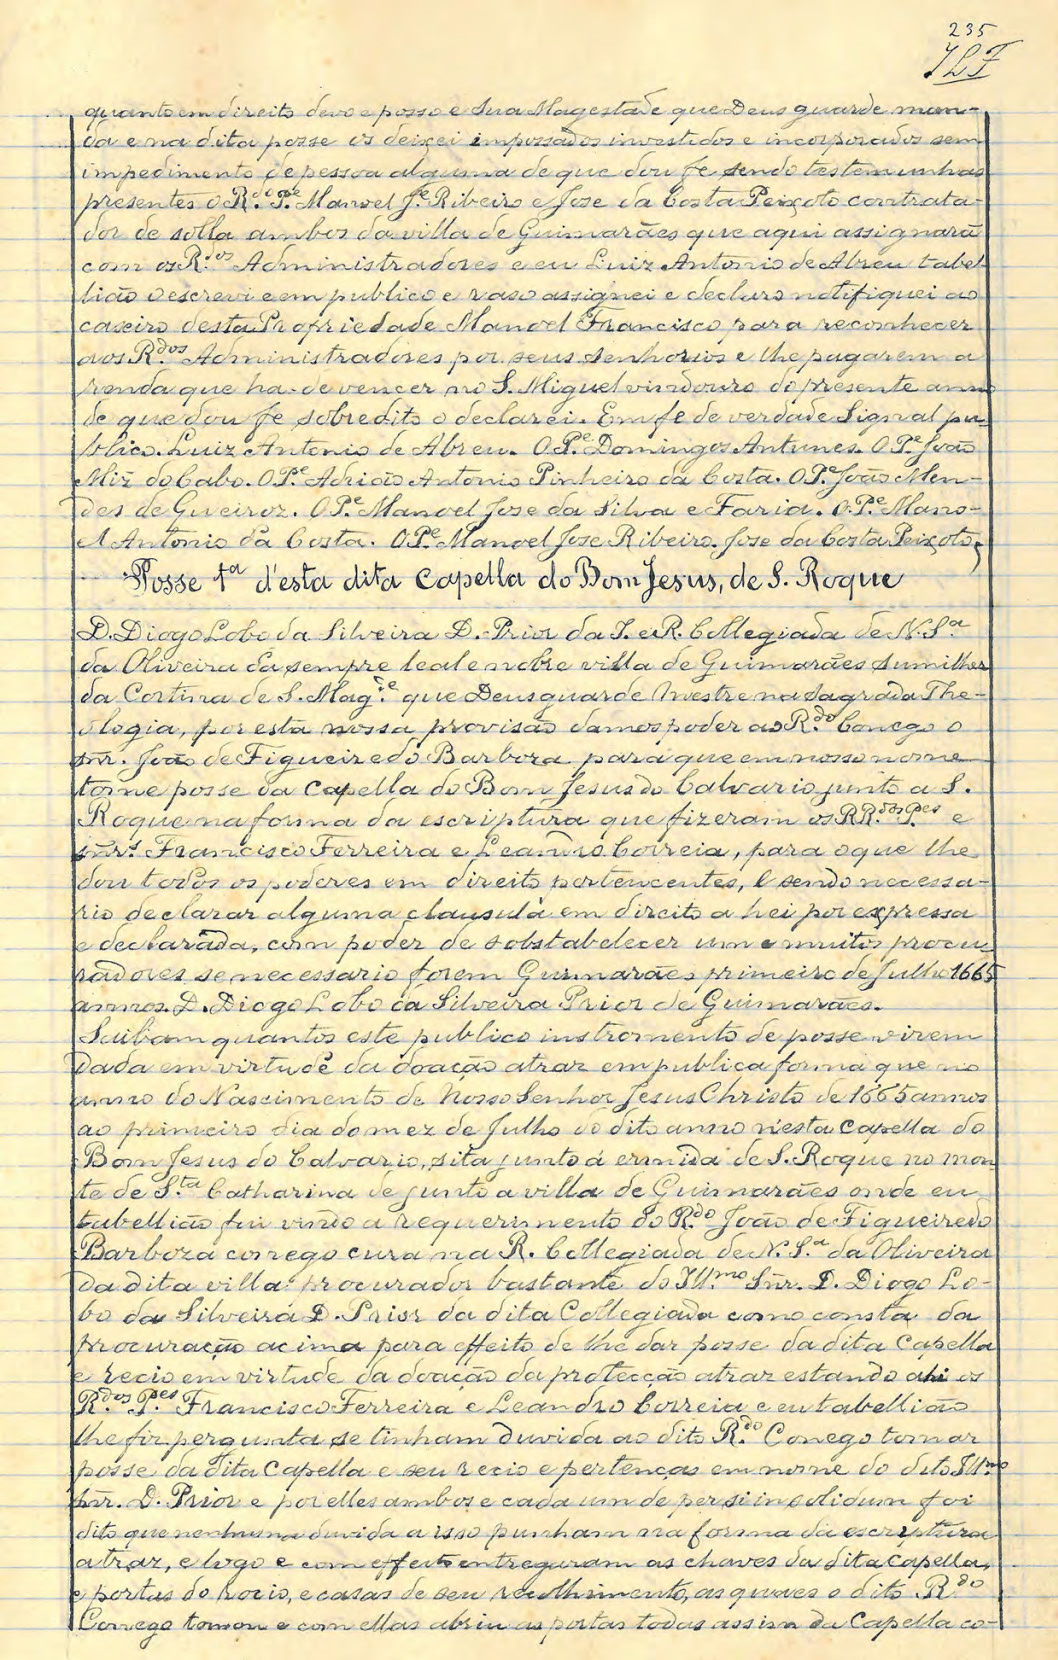 235
JLF
quanto em direito devo e posso e Sua Magestade que Deus guarde man-
da e na dita posse os deixei impossados investidos e incorporados sem
impedimento de pessoa alguma de que dou fe sendo testemunhas
presentes o R.do P.e Manoel J.e Ribeiro e Jose da Costa Peixoto contrata-
dor de solla ambos da villa de Guimarães que aqui assignarã
com os R.dos Administradores e eu Luiz Antonio de Abreu tabel-
lião o escrevi e em publico e raso assignei e declaro notifiquei ao
caseiro desta Propriedade Manoel Francisco para reconhecer
aos R.dos Administradores por seus senhorios e lhe pagarem a
renda que ha-de vencer no S. Miguel vindouro do presente anno
de que dou fe sobredito o declarei. Em fe de verdade Signal pu-
blico. Luiz Antonio de Abreu. O P.e Domingos Antunes. O P.e João
Miz do Cabo. O P.e Adrião Antonio Pinheiro da Costa. O P.e João Men-
des de Queiroz. O P.e Manoel Jose da Silva e Faria. O P.e Mano-
el Antonio da Costa. O P.e Manoel Jose Ribeiro. Jose da Costa Peixoto,
Posse 1ª d'esta dita Capella do Bom Jesus, de S. Roque
D. Diogo Lobo da Silveira D. Prior da I. e R. Collegiada de N. S.a
da Oliveira da sempre leal e nobre villa de Guimarães sumilher
da Cortina de S. Mag.e que Deus guarde Mestre na Sagrada The-
ologia, por esta nossa provisão damos poder ao R.do Conego o
snr. João de Figueiredo Barboza para que em nosso nome
tome posse da Capella do Bom Jesus do Calvario junto a S.
Roque na forma da escriptura que fizeram os RR.dos P.es e
snr.s Francisco Ferreira e Leandro Correia, para o que lhe
dou todos os poderes em direito pertencentes, e sendo necessa-
rio declarar alguma clausula em direito a hei por expressa
e declarada, com poder de sobstabelecer um e muitos procu-
radores se necessario forem Guimarães primeiro de Julho 1665
annos. D. Diogo Lobo da Silveira Prior de Guimarães.
Saibam quantos este publico instromento de posse virem
dada em virtude da doação atraz em publica forma que no
anno do Nascimento de Nosso Senhor Jesus Christo de 1665 annos
ao primeiro dia do mez de Julho do dito anno n'esta Capella do
Bom Jesus do Calvario, sita junto á ermida de S. Roque no mon-
te de S.ta Catharina de junto a villa de Guimarães onde eu
tabellião fui vindo a requerimento do R.do João de Figueiredo
Barboza conego cura na R. Collegiada de N. S.a da Oliveira
da dita villa procurador bastante do Ill.mo Snr. D. Diogo Lo-
bo da Silveira D. Prior da dita Collegiada como consta da
procuração acima para effeito de lhe dar posse da dita Capella
e recio em virtude da doação da protecção atraz estando ahi os
R.dos P.es Francisco Ferreira e Leandro Correia e eu tabellião
lhe fiz pergunta se tinham duvida ao dito R.do Conego tomar
posse da dita Capella e seu recio e pertenças em nome do dito Ill.mo
snr. D. Prior e por elles ambos e cada um de per si in solidum foi
dito que nenhuma duvida a isso punham na forma da escriptura
atraz, e logo e com effeito entregaram as chaves da dita Capella,
e portas do rocio, e casas de seu recolhimento, as quaes o dito R.do
Conego tomou e com ellas abriu as portas todas assim da Capella co-